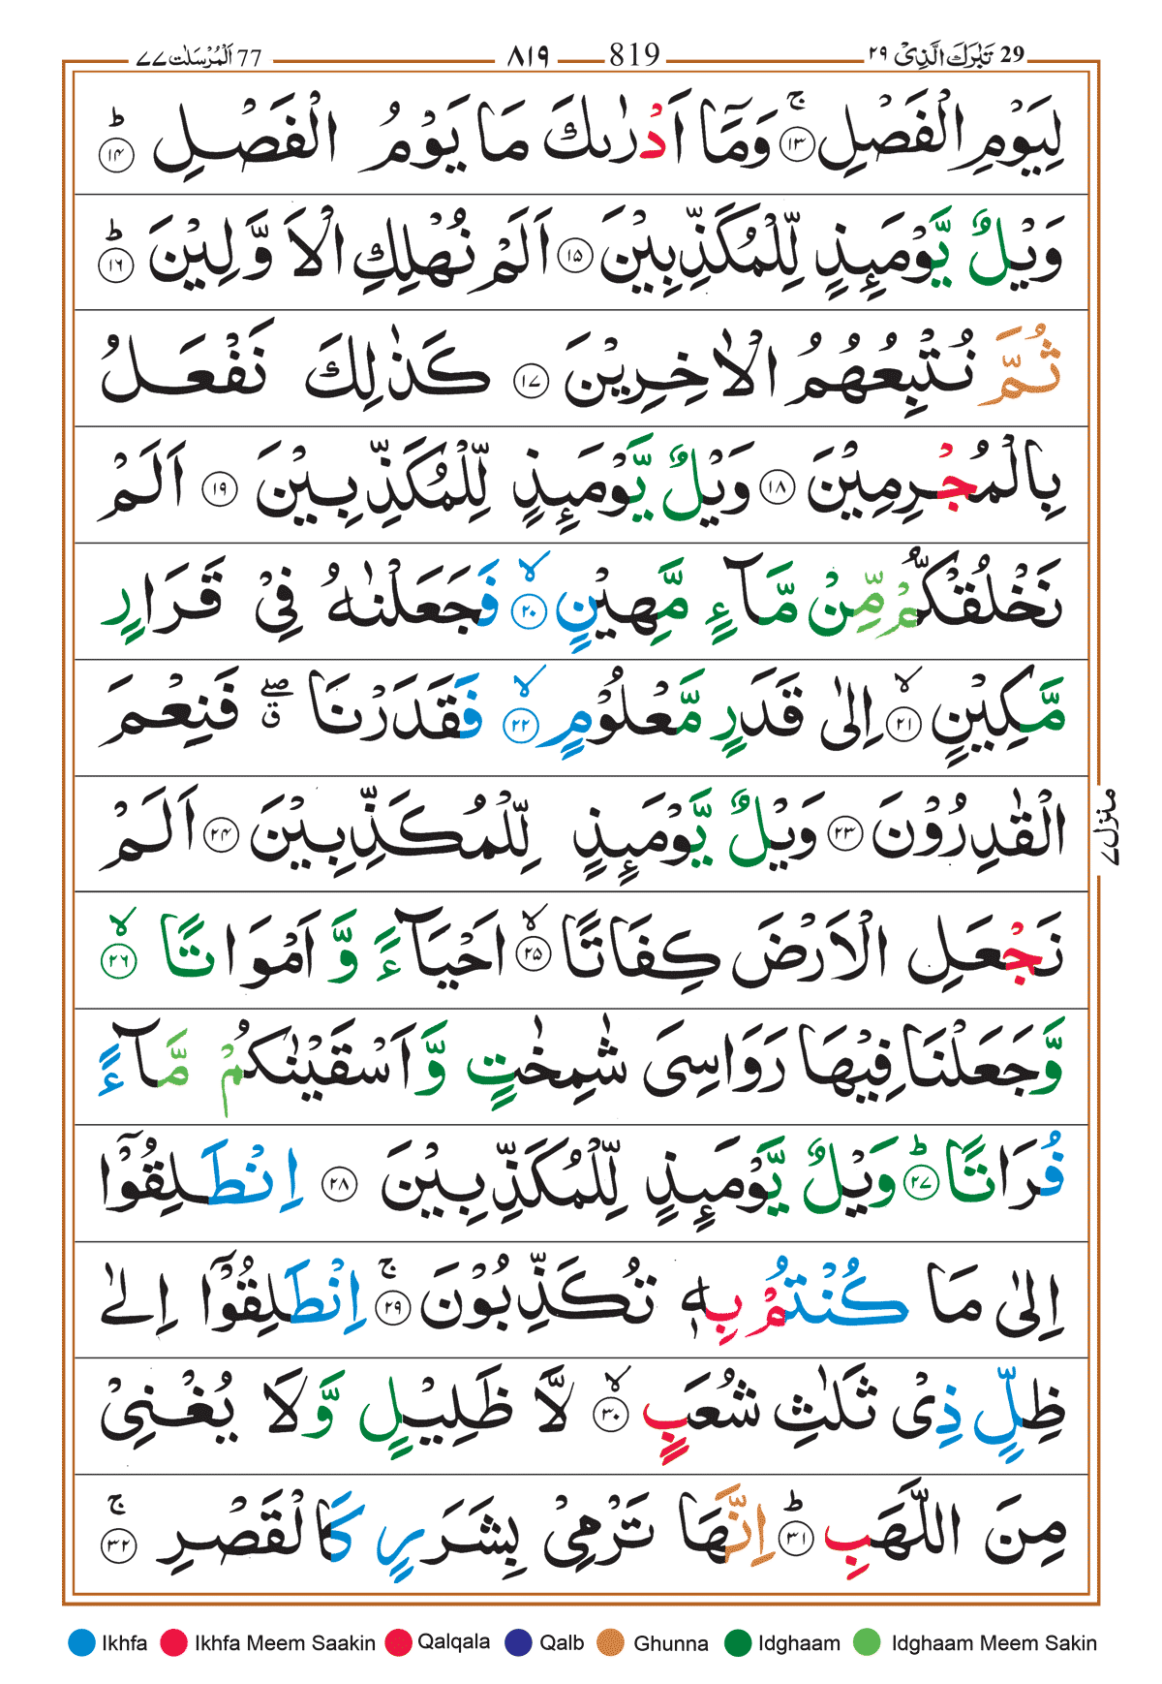 29 تَبٰرَكَ الَّذِیْ ٢٩ 819 ٨١٩ 77 اَلْمُرْسَلٰت ٧٧
لِیَوْمِ الْفَصْلِ ۚ ١٣ وَمَاۤ اَدْرٰىكَ مَا یَوْمُ الْفَصْلِ ؕ ١٤
وَیْلٌ یَّوْمَىِٕذٍ لِّلْمُكَذِّبِیْنَ ١٥ اَلَمْ نُهْلِكِ الْاَوَّلِیْنَ ؕ ١٦
ثُمَّ نُتْبِعُهُمُ الْاٰخِرِیْنَ ١٧ كَذٰلِكَ نَفْعَلُ
بِالْمُجْرِمِیْنَ ١٨ وَیْلٌ یَّوْمَىِٕذٍ لِّلْمُكَذِّبِیْنَ ١٩ اَلَمْ
نَخْلُقْكُّمْ مِّنْ مَّآءٍ مَّهِیْنٍ ۙ ٢٠ فَجَعَلْنٰهُ فِیْ قَرَارٍ
مَّكِیْنٍ ۙ ٢١ اِلٰی قَدَرٍ مَّعْلُوْمٍ ۙ ٢٢ فَقَدَرْنَا ۖۗ فَنِعْمَ
الْقٰدِرُوْنَ ٢٣ وَیْلٌ یَّوْمَىِٕذٍ لِّلْمُكَذِّبِیْنَ ٢٤ اَلَمْ
منزل ٧
نَجْعَلِ الْاَرْضَ كِفَاتًا ۙ ٢٥ اَحْیَآءً وَّ اَمْوَاتًا ۙ ٢٦
وَّجَعَلْنَا فِیْهَا رَوَاسِیَ شٰمِخٰتٍ وَّ اَسْقَیْنٰكُمْ مَّآءً
فُرَاتًا ؕ ٢٧ وَیْلٌ یَّوْمَىِٕذٍ لِّلْمُكَذِّبِیْنَ ٢٨ اِنْطَلِقُوْۤا
اِلٰی مَا كُنْتُمْ بِهٖ تُكَذِّبُوْنَ ۚ ٢٩ اِنْطَلِقُوْۤا اِلٰی
ظِلٍّ ذِیْ ثَلٰثِ شُعَبٍ ۙ ٣٠ لَّا ظَلِیْلٍ وَّ لَا یُغْنِیْ
مِنَ اللَّهَبِ ؕ ٣١ اِنَّهَا تَرْمِیْ بِشَرَرٍ كَالْقَصْرِ ۚ ٣٢
Ikhfa Ikhfa Meem Saakin Qalqala Qalb Ghunna Idghaam Idghaam Meem Sakin